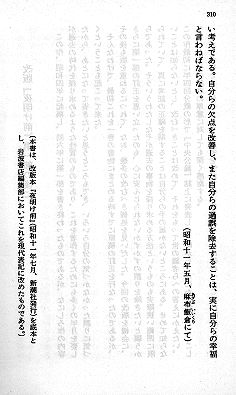 310
い考えである。自分らの欠点を改善し、また自分らの過誤を除去することは、実に自分らの幸福
と言わねばならない。
（昭和十一年五月、麻布飯倉にて）
（本書は、改版本『夜明け前』（昭和十一年七月、新潮社発行）を底本と
し、岩波書店編集部においてこれを現代表記に改めたものである。）